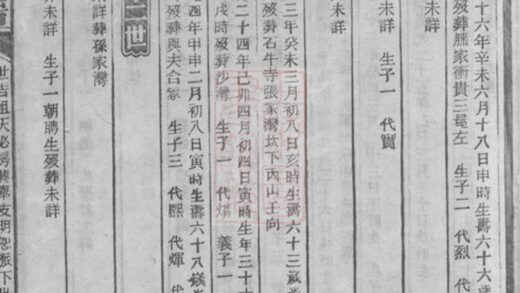 十六年辛未六月十八日申時生壽六十六歲
歿葬滕家衝貴三屋左 生子二 代烈 代
未詳 生子一 代寳
未詳
三年癸未三月初八日亥時生壽六十三歲
歿葬石牛寺張家灣坎下丙山壬向
二十四年己卯四月初四日寅時生年三十
戌時歿葬沙灣 生子一 代煬 義子一
四年甲申二月初八日寅時生壽六十八歲
歿葬與夫合冢 生子三 代熙 代輝 代
世
未詳葬孫家灣
未詳 生子一朝聘生歿葬未詳
世吉祖天必房